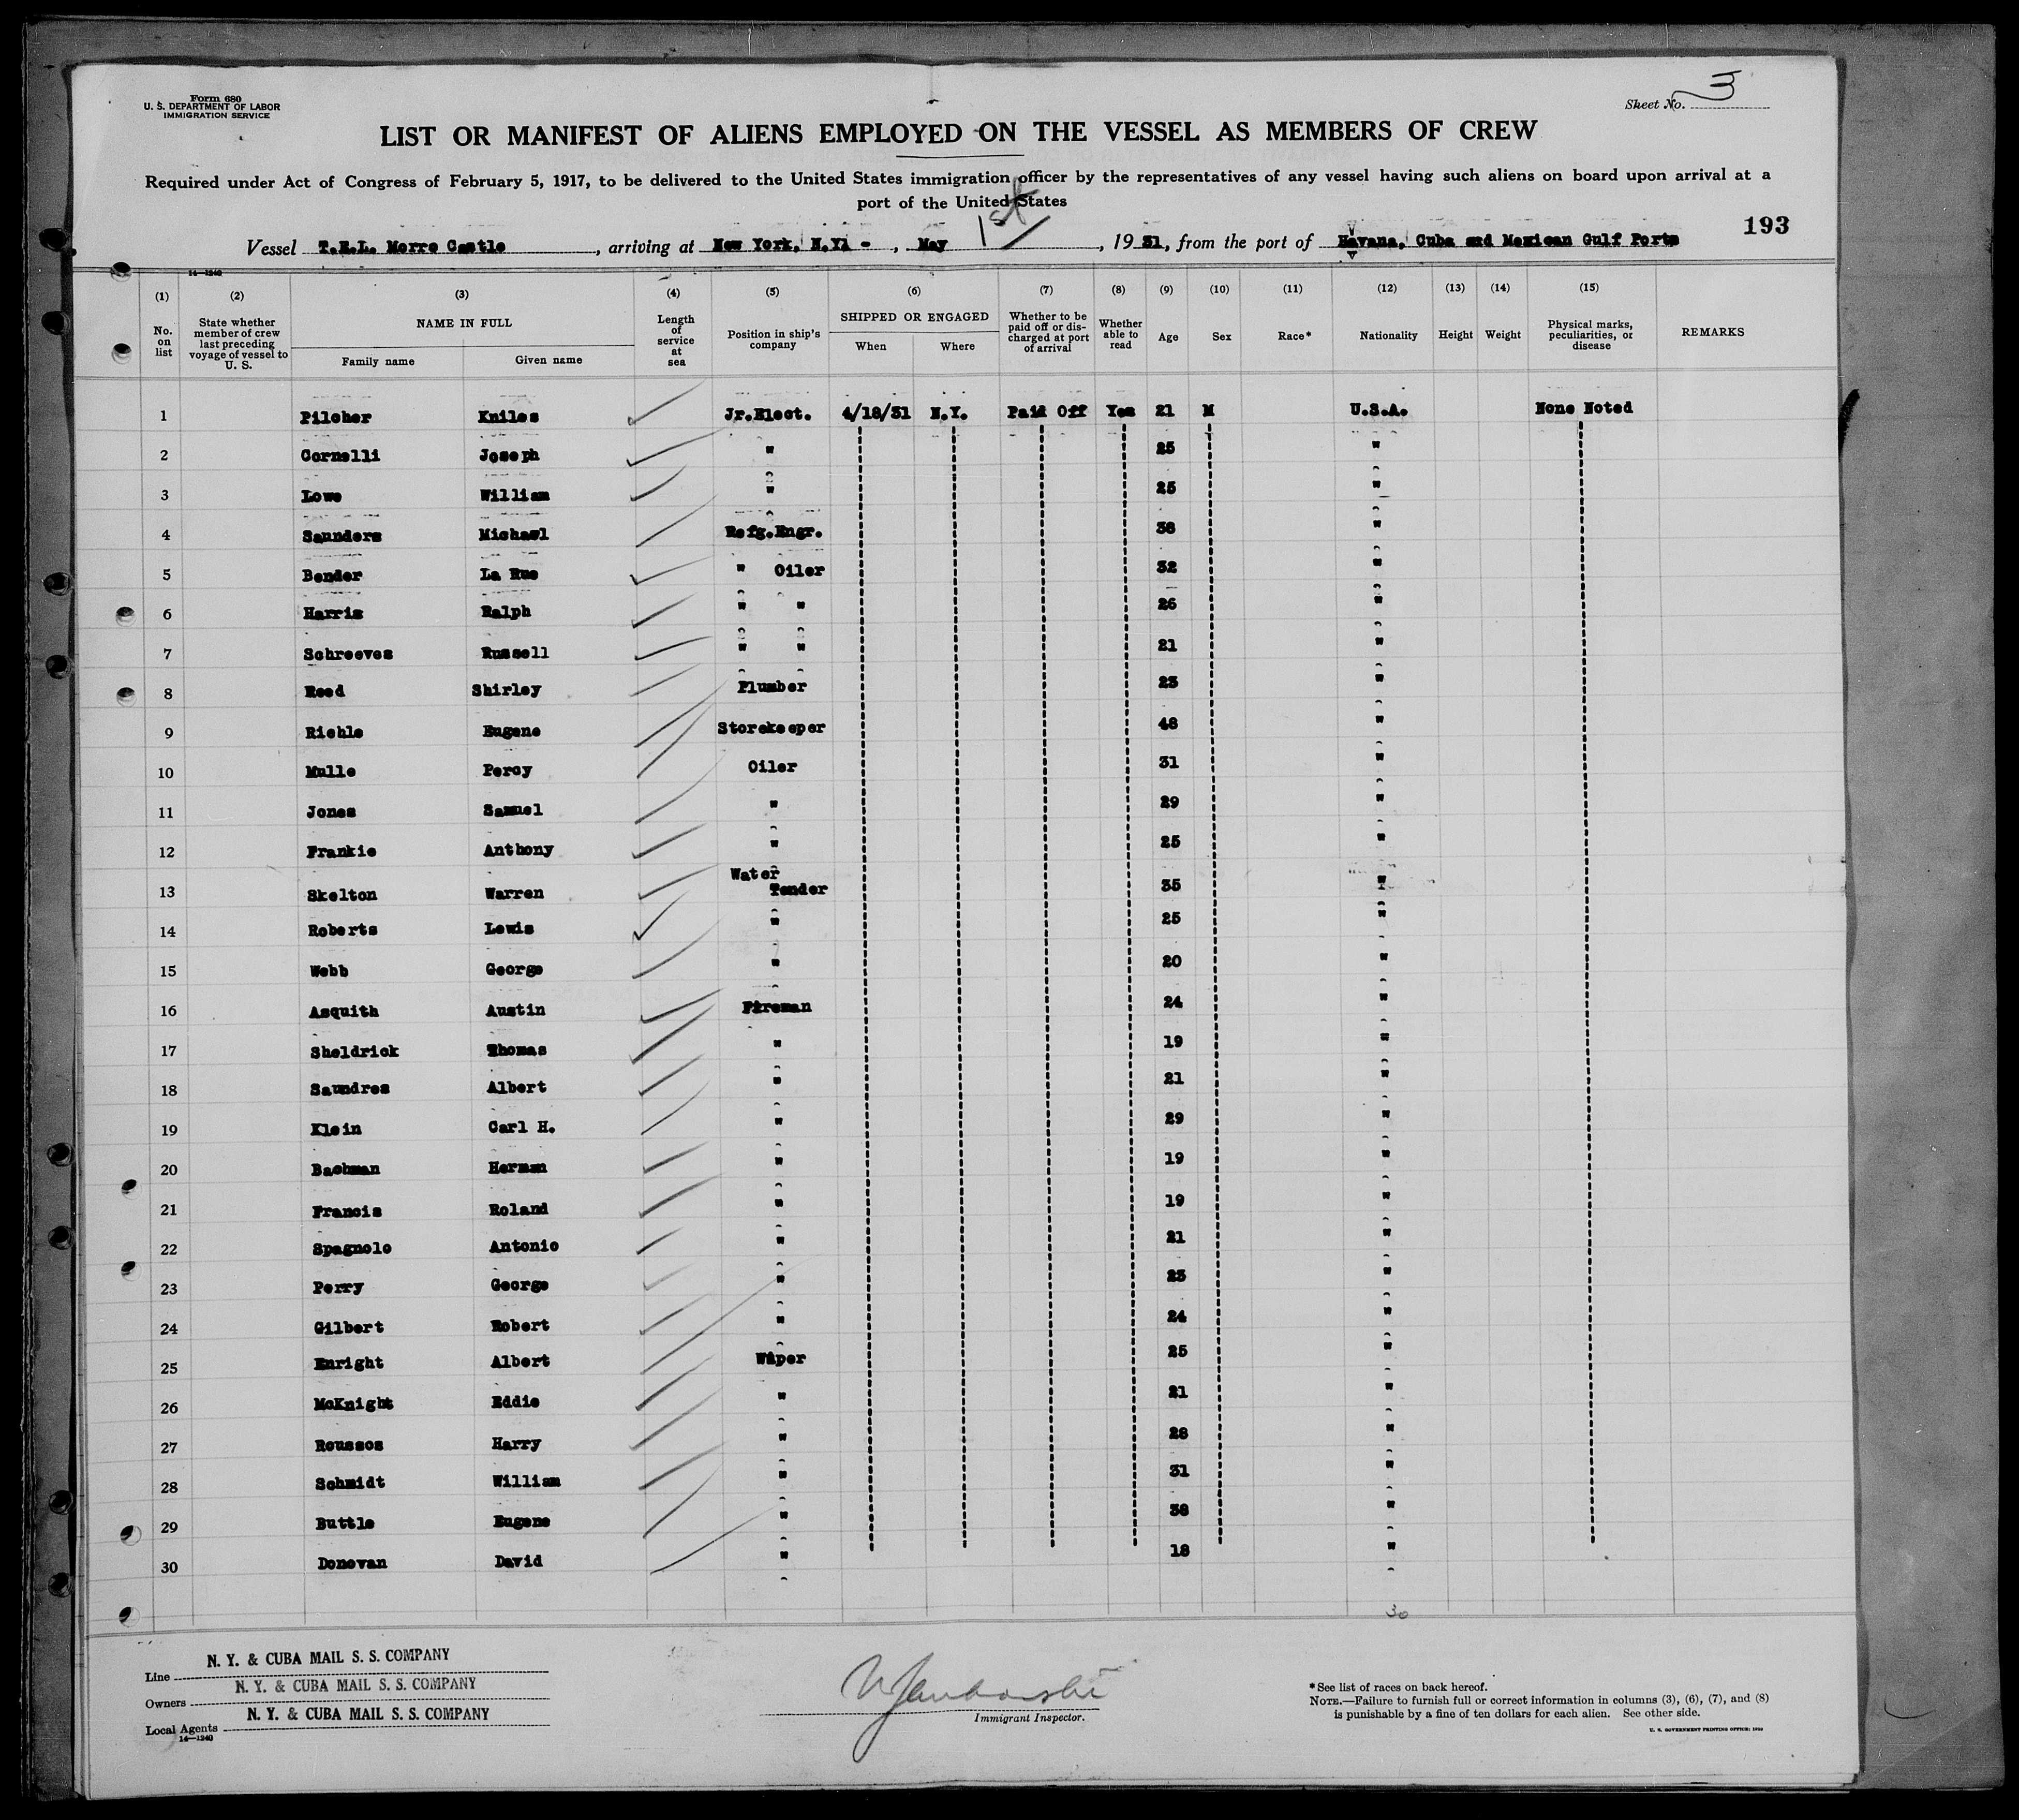 Form 680
U. S. DEPARTMENT OF LABOR
IMMIGRATION SERVICE
Sheet No. 3
LIST OR MANIFEST OF ALIENS EMPLOYED ON THE VESSEL AS MEMBERS OF CREW
Required under Act of Congress of February 5, 1917, to be delivered to the United States immigration officer by the representatives of any vessel having such aliens on board upon arrival at a
port of the United States
193
Vessel T.E.L. Morro Castle, arriving at New York, N.Y. -, May 1st, 1931, from the port of Havana, Cuba and Mexican Gulf Ports
14—1240
(1) (2) (3) (4) (5) (6) (7) (8) (9) (10) (11) (12) (13) (14) (15)
No. on list
State whether member of crew last preceding voyage of vessel to U. S.
NAME IN FULL
Family name Given name
Length of service at sea
Position in ship's company
SHIPPED OR ENGAGED
When Where
Whether to be paid off or discharged at port of arrival
Whether able to read
Age Sex Race* Nationality Height Weight
Physical marks, peculiarities, or disease
REMARKS
1 Pilcher Kniles Jr.Elect. 4/18/31 N.Y. Paid Off Yes 21 M U.S.A. None Noted
2 Cornelli Joseph " 25 "
3 Lowe William " 25 "
4 Saunders Michael Refg.Engr. 38 "
5 Bender La Rue " Oiler 32 "
6 Harris Ralph " " 26 "
7 Schreeves Russell " " 21 "
8 Reed Shirley Plumber 23 "
9 Riehle Eugene Storekeeper 48 "
10 Mulle Percy Oiler 31 "
11 Jones Samuel " 29 "
12 Frankie Anthony " 25 "
13 Skelton Warren Water Tender 35 "
14 Roberts Lewis " 25 "
15 Webb George " 20 "
16 Asquith Austin Fireman 24 "
17 Sheldrick Thomas " 19 "
18 Saundres Albert " 21 "
19 Klein Carl H. " 29 "
20 Bachman Herman " 19 "
21 Francis Roland " 19 "
22 Spagnolo Antonio " 21 "
23 Perry George " 23 "
24 Gilbert Robert " 24 "
25 Enright Albert Wiper 25 "
26 McKnight Eddie " 21 "
27 Roussos Harry " 28 "
28 Schmidt William " 31 "
29 Buttle Eugene " 38 "
30 Donovan David " 18 "
30
Line N. Y. & CUBA MAIL S. S. COMPANY
Owners N. Y. & CUBA MAIL S. S. COMPANY
Local Agents N. Y. & CUBA MAIL S. S. COMPANY
14—1240
Immigrant Inspector.
*See list of races on back hereof.
NOTE.—Failure to furnish full or correct information in columns (3), (6), (7), and (8)
is punishable by a fine of ten dollars for each alien. See other side.